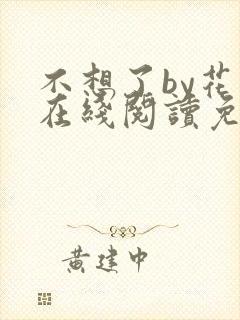 不想了by花
在綫閱讀免
黃建中